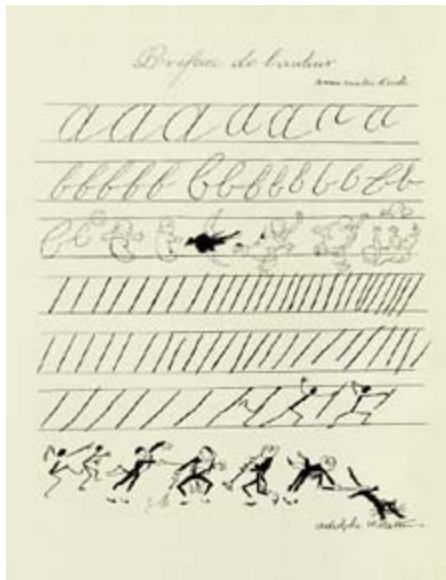 Préface de l'auteur
a a a a a a a a
b b b b b b b b b b b b b b
b b
adolphe Willette